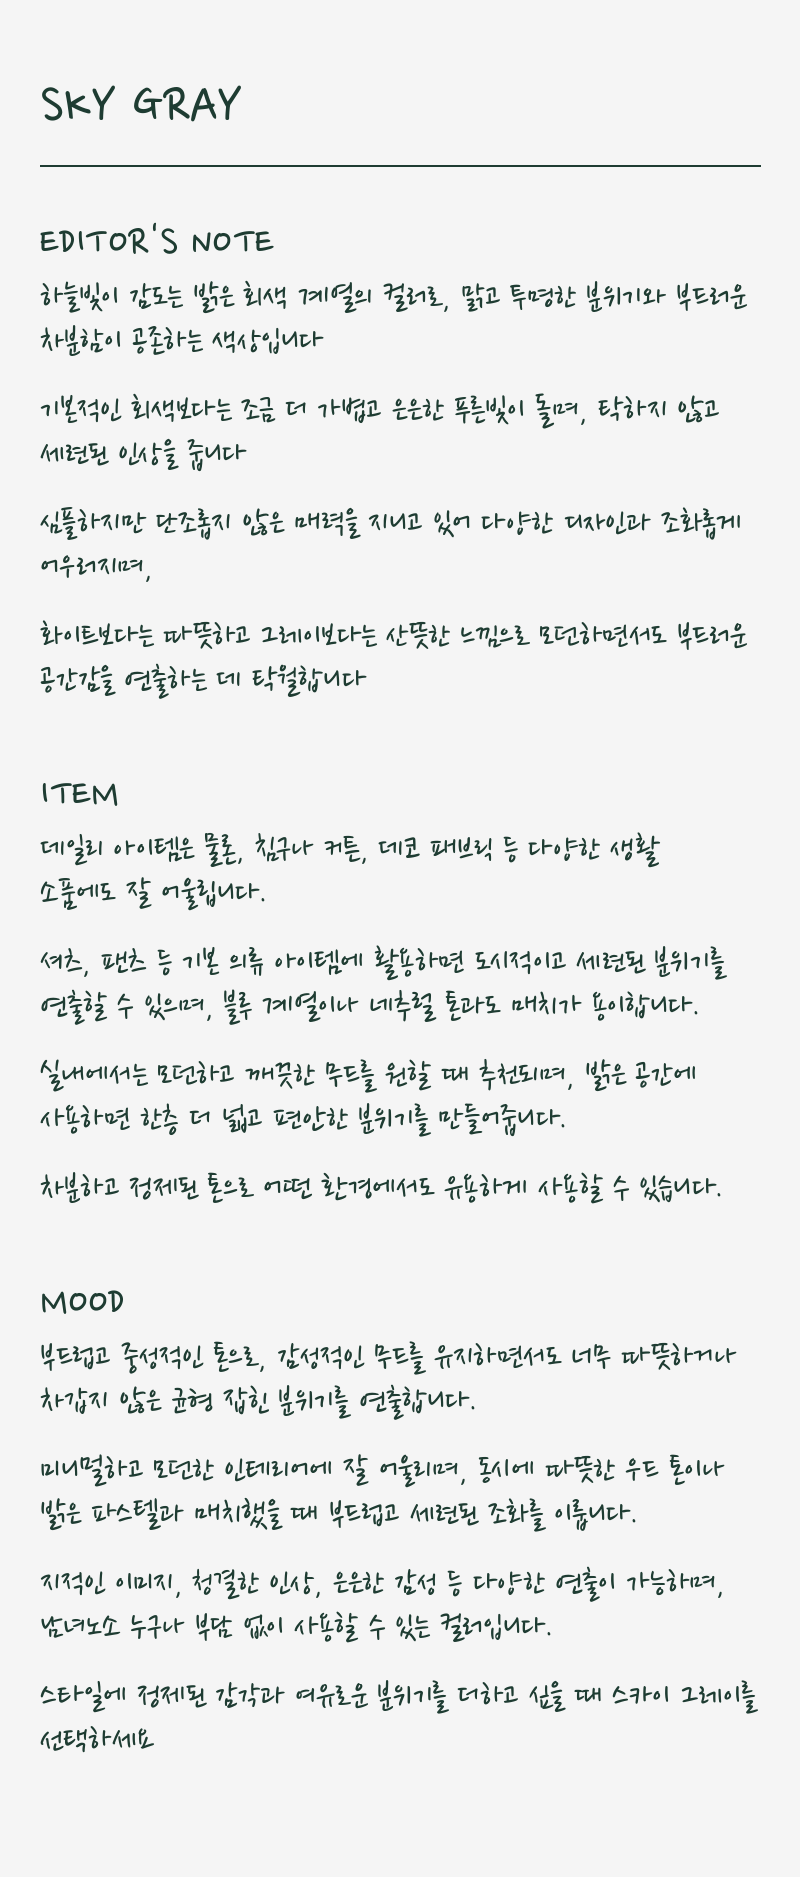 SKY GRAY
EDITOR'S NOTE
하늘빛이 감도는 밝은 회색 계열의 컬러로, 맑고 투명한 분위기와 부드러운
차분함이 공존하는 색상입니다
기본적인 회색보다는 조금 더 가볍고 은은한 푸른빛이 돌며, 탁하지 않고
세련된 인상을 줍니다
심플하지만 단조롭지 않은 매력을 지니고 있어 다양한 디자인과 조화롭게
어우러지며,
화이트보다는 따뜻하고 그레이보다는 산뜻한 느낌으로 모던하면서도 부드러운
공간감을 연출하는 데 탁월합니다
ITEM
데일리 아이템은 물론, 침구나 커튼, 데코 패브릭 등 다양한 생활
소품에도 잘 어울립니다.
셔츠, 팬츠 등 기본 의류 아이템에 활용하면 도시적이고 세련된 분위기를
연출할 수 있으며, 블루 계열이나 네추럴 톤과도 매치가 용이합니다.
실내에서는 모던하고 깨끗한 무드를 원할 때 추천되며, 밝은 공간에
사용하면 한층 더 넓고 편안한 분위기를 만들어줍니다.
차분하고 정제된 톤으로 어떤 환경에서도 유용하게 사용할 수 있습니다.
MOOD
부드럽고 중성적인 톤으로, 감성적인 무드를 유지하면서도 너무 따뜻하거나
차갑지 않은 균형 잡힌 분위기를 연출합니다.
미니멀하고 모던한 인테리어에 잘 어울리며, 동시에 따뜻한 우드 톤이나
밝은 파스텔과 매치했을 때 부드럽고 세련된 조화를 이룹니다.
지적인 이미지, 청결한 인상, 은은한 감성 등 다양한 연출이 가능하며,
남녀노소 누구나 부담 없이 사용할 수 있는 컬러입니다.
스타일에 정제된 감각과 여유로운 분위기를 더하고 싶을 때 스카이 그레이를
선택하세요